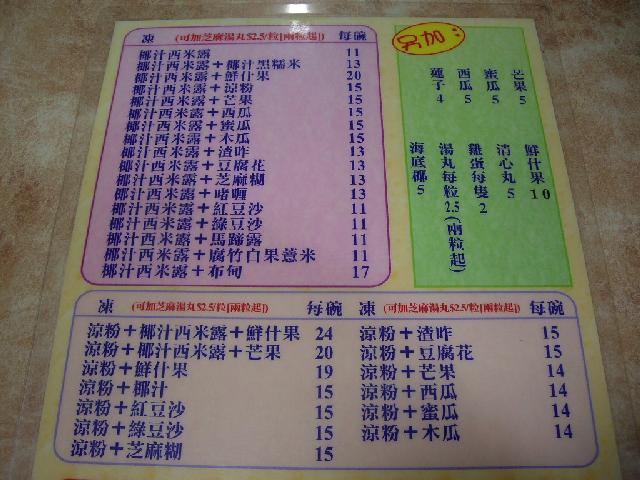 凍 (可加芝麻湯丸$2.5/粒[兩粒起]) 每碗
椰汁西米露 11
椰汁西米露+椰汁黑糯米 13
椰汁西米露+鮮什果 20
椰汁西米露+涼粉 15
椰汁西米露+芒果 15
椰汁西米露+西瓜 15
椰汁西米露+蜜瓜 15
椰汁西米露+木瓜 15
椰汁西米露+渣咋 13
椰汁西米露+豆腐花 13
椰汁西米露+芝麻糊 13
椰汁西米露+啫喱 13
椰汁西米露+紅豆沙 11
椰汁西米露+綠豆沙 11
椰汁西米露+馬蹄露 11
椰汁西米露+腐竹白果薏米 11
椰汁西米露+布甸 17
另加:
芒果 5
蜜瓜 5
西瓜 5
蓮子 4
鮮什果 10
清心丸 5
雞蛋每隻 2
湯丸每粒 2.5(兩粒起)
海底椰 5
凍 (可加芝麻湯丸$2.5/粒[兩粒起]) 每碗
涼粉+椰汁西米露+鮮什果 24
涼粉+椰汁西米露+芒果 20
涼粉+鮮什果 19
涼粉+椰汁 15
涼粉+紅豆沙 15
涼粉+綠豆沙 15
涼粉+芝麻糊 15
凍 (可加芝麻湯丸$2.5/粒[兩粒起]) 每碗
涼粉+渣咋 15
涼粉+豆腐花 15
涼粉+芒果 14
涼粉+西瓜 14
涼粉+蜜瓜 14
涼粉+木瓜 14